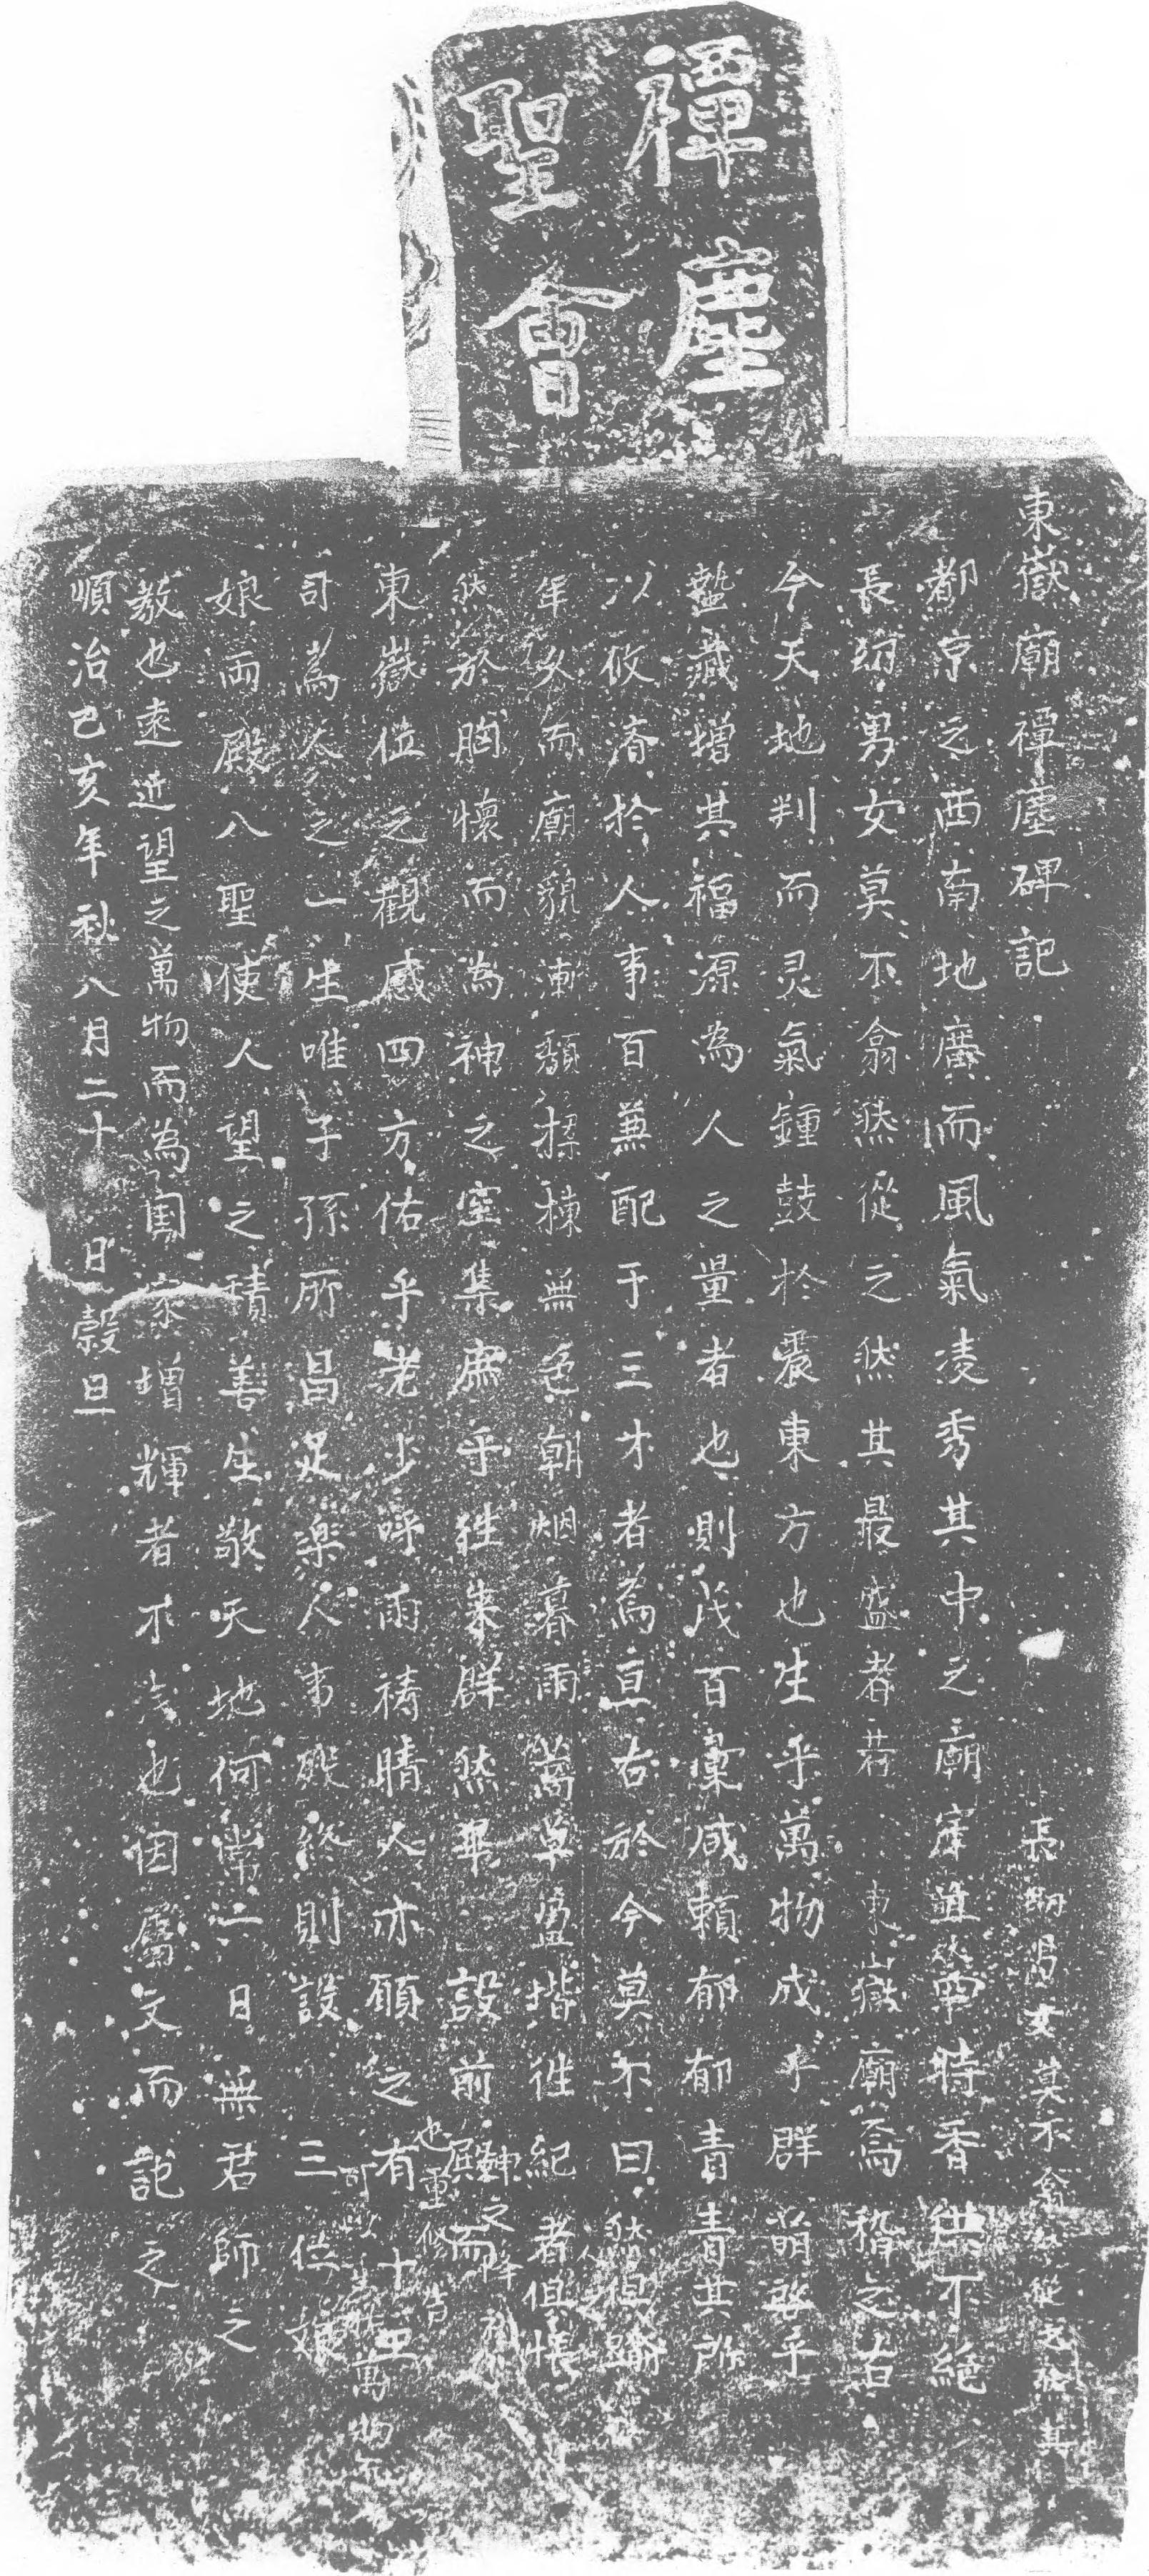 禪塵
聖會
東嶽廟禪塵碑記
長幼男女莫不翕然從之然其
都京之西南地廣而風氣凌秀其中之廟寉直然四時香供不絕
長幼男女莫不翕然從之然其最盛者若東山嶽廟焉稽之古
今天地判而灵氣鍾鼓於震東方也生乎萬物成乎群萌發乎
蟄藏增其福源為人之量者也則茂百彙咸賴郁郁青青其所
以攸濟於人事百無配于三才者為亘古於今莫不曰然但
年久而廟貌漸頹探棟無色朝烟暮雨蒿草盈堦徃紀者但悵
然於胸懷而為神之室集庶乎徃朱群然畢設前殿而
神之降
也重修告
東嶽位之觀感四方佑乎老少呼雨祷晴人亦願之有十王
司為人之一生唯子孫所昌足楽人事既終則設三位娘
娘両殿八聖使人望之積善生敬天地何常一日無君師之
教也遠近望之萬物而為國家增輝者不浅也因屬文而記之
順治己亥年秋八月二十日穀旦